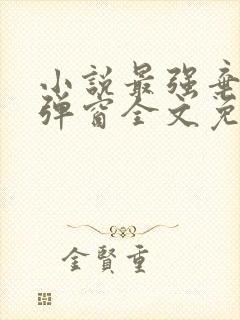 小說最强棄
彈窗全文免
金賢重